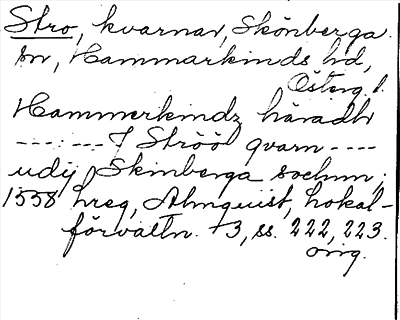 Stro, kvarnar, Skönberga
sn, Hammarkinds hd,
Österg. l.
Hammerkindz häradh
---:--- I Ströö qvarn ----
udij Skinberga sochnn;
1558 hreg, Almquist, Lokal-
förvaltn. +3, ss. 222, 223.
orig.